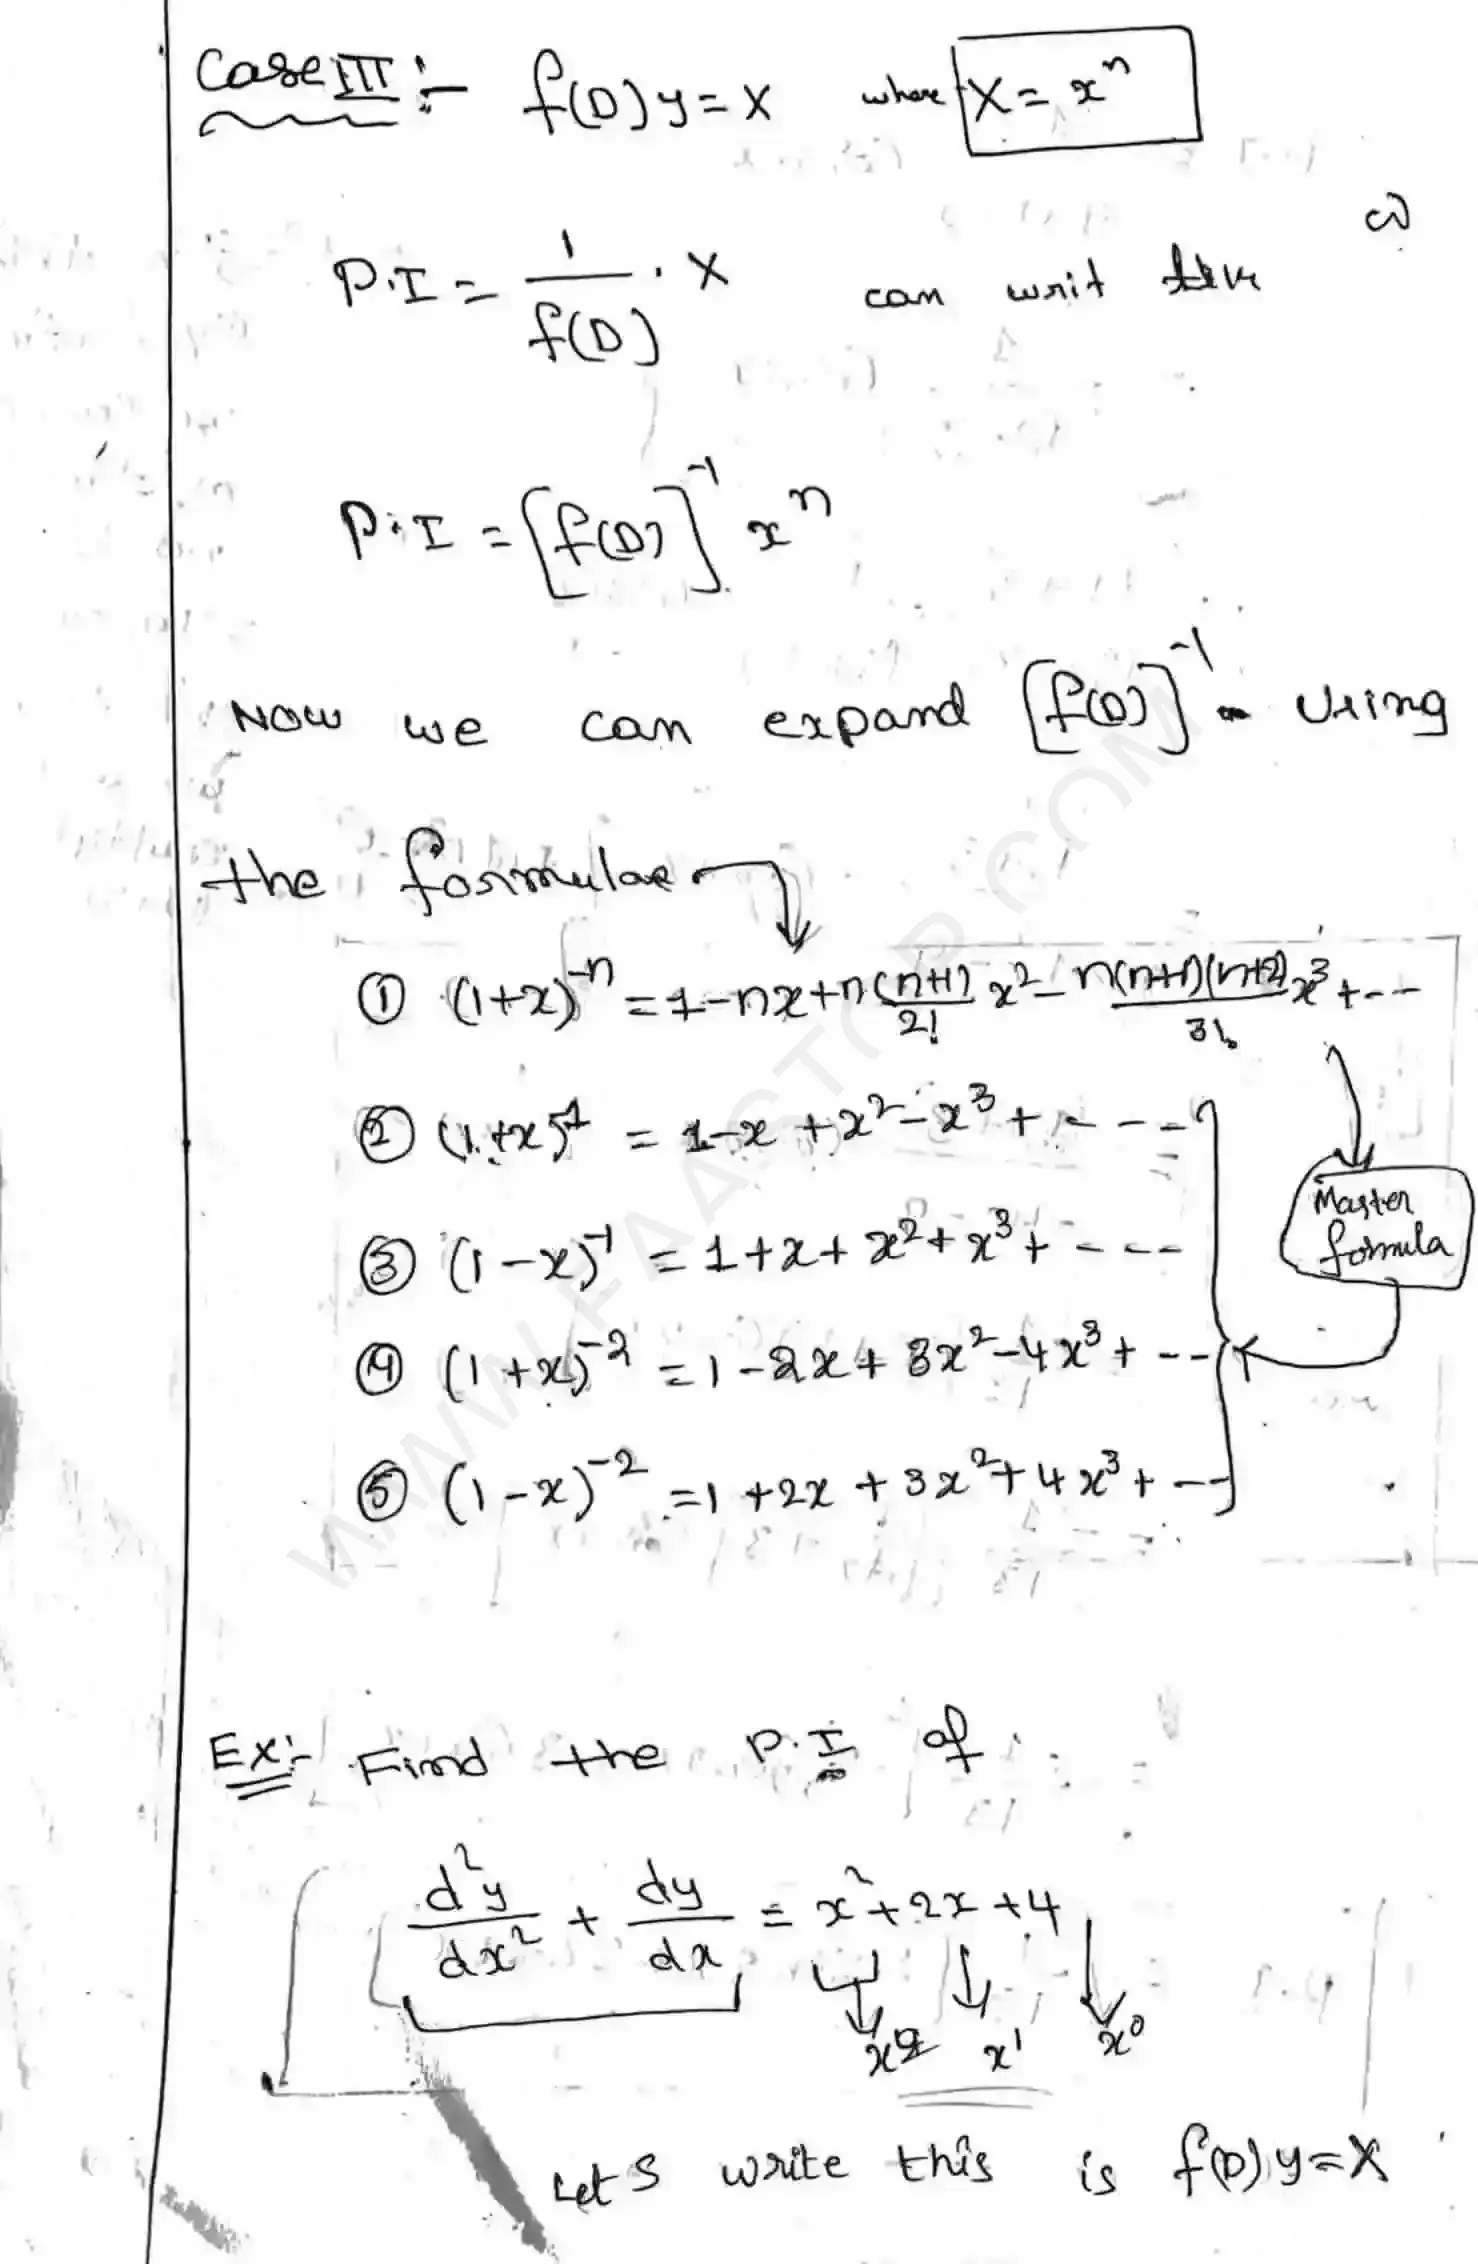 Case III :- f(D) y = X where X = xⁿ
P.I = 1/f(D) . X can writ
P.I = [f(D)]⁻¹ xⁿ
Now we can expand [f(D)]⁻¹ using
the formulae
① (1+x)⁻ⁿ = 1-nx+n(n+1)/2! x² - n(n+1)(n+2)/3! x³ + ---
② (1+x)⁻¹ = 1-x+x²-x³+ ----
③ (1-x)⁻¹ = 1+x+x²+x³+ ----
④ (1+x)⁻² = 1-2x+3x²-4x³+ ---
⑤ (1-x)⁻² = 1+2x+3x²+4x³+ ---
Master
formula
Ex:- Find the P.I of
d²y/dx² + dy/dx = x²+2x+4
x² x¹ x⁰
Lets write this is f(D) y = X
WWW.FAASTOP.COM